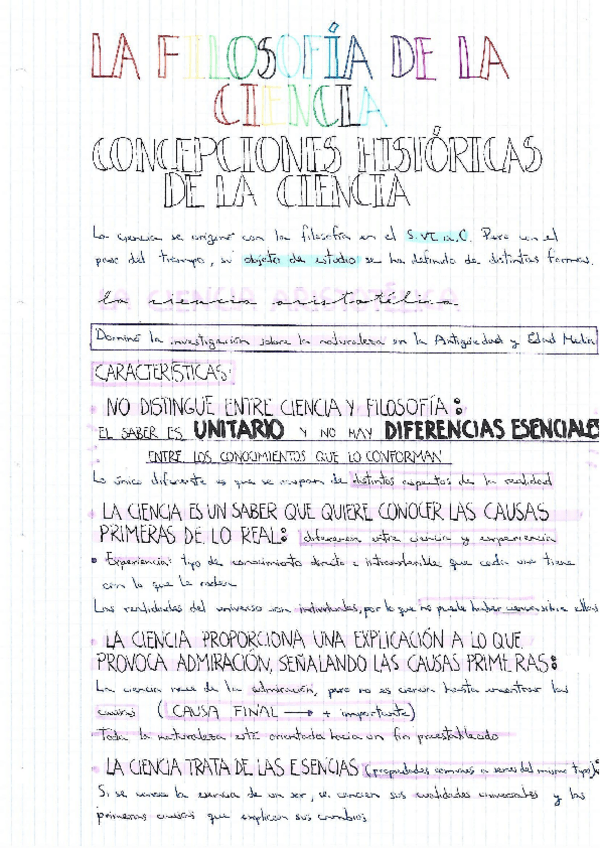 LA FILOSOFÍA DE LA
CIENCIA
CONCEPCIONES HISTÓRICAS
DE LA CIENCIA
La ciencia se originó con la filosofía en el S. VI a.C. Pero con el
paso del tiempo, su objeto de estudio se ha definido de distintas formas.
la ciencia aristotélica
Dominó la investigación sobre la naturaleza en la Antigüedad y Edad Media
CARACTERÍSTICAS:
· NO DISTINGUE ENTRE CIENCIA Y FILOSOFÍA:
EL SABER ES UNITARIO Y NO HAY DIFERENCIAS ESENCIALES
ENTRE LOS CONOCIMIENTOS QUE LO CONFORMAN
Lo único diferente es que se ocupan de distintos aspectos de la realidad
· LA CIENCIA ES UN SABER QUE QUIERE CONOCER LAS CAUSAS
PRIMERAS DE LO REAL: diferencia entre ciencia y experiencia
• Experiencia: tipo de conocimiento directo e intrascendente que cada uno tiene
con lo que le rodea
Las realidades del universo son individuales, por lo que no puede haber sobre ellas
· LA CIENCIA PROPORCIONA UNA EXPLICACIÓN A LO QUE
PROVOCA ADMIRACIÓN, SEÑALANDO LAS CAUSAS PRIMERAS:
La ciencia nace de la admiración, pero no es ciencia hasta encontrar las
causas (CAUSA FINAL → + importante)
Toda la naturaleza está orientada hacia un fin preestablecido
· LA CIENCIA TRATA DE LAS ESENCIAS (propiedades comunes a seres del mismo tipo):
Si se conoce la esencia de un ser, se conocen sus cualidades universales y las
primeras causas que explican sus cambios